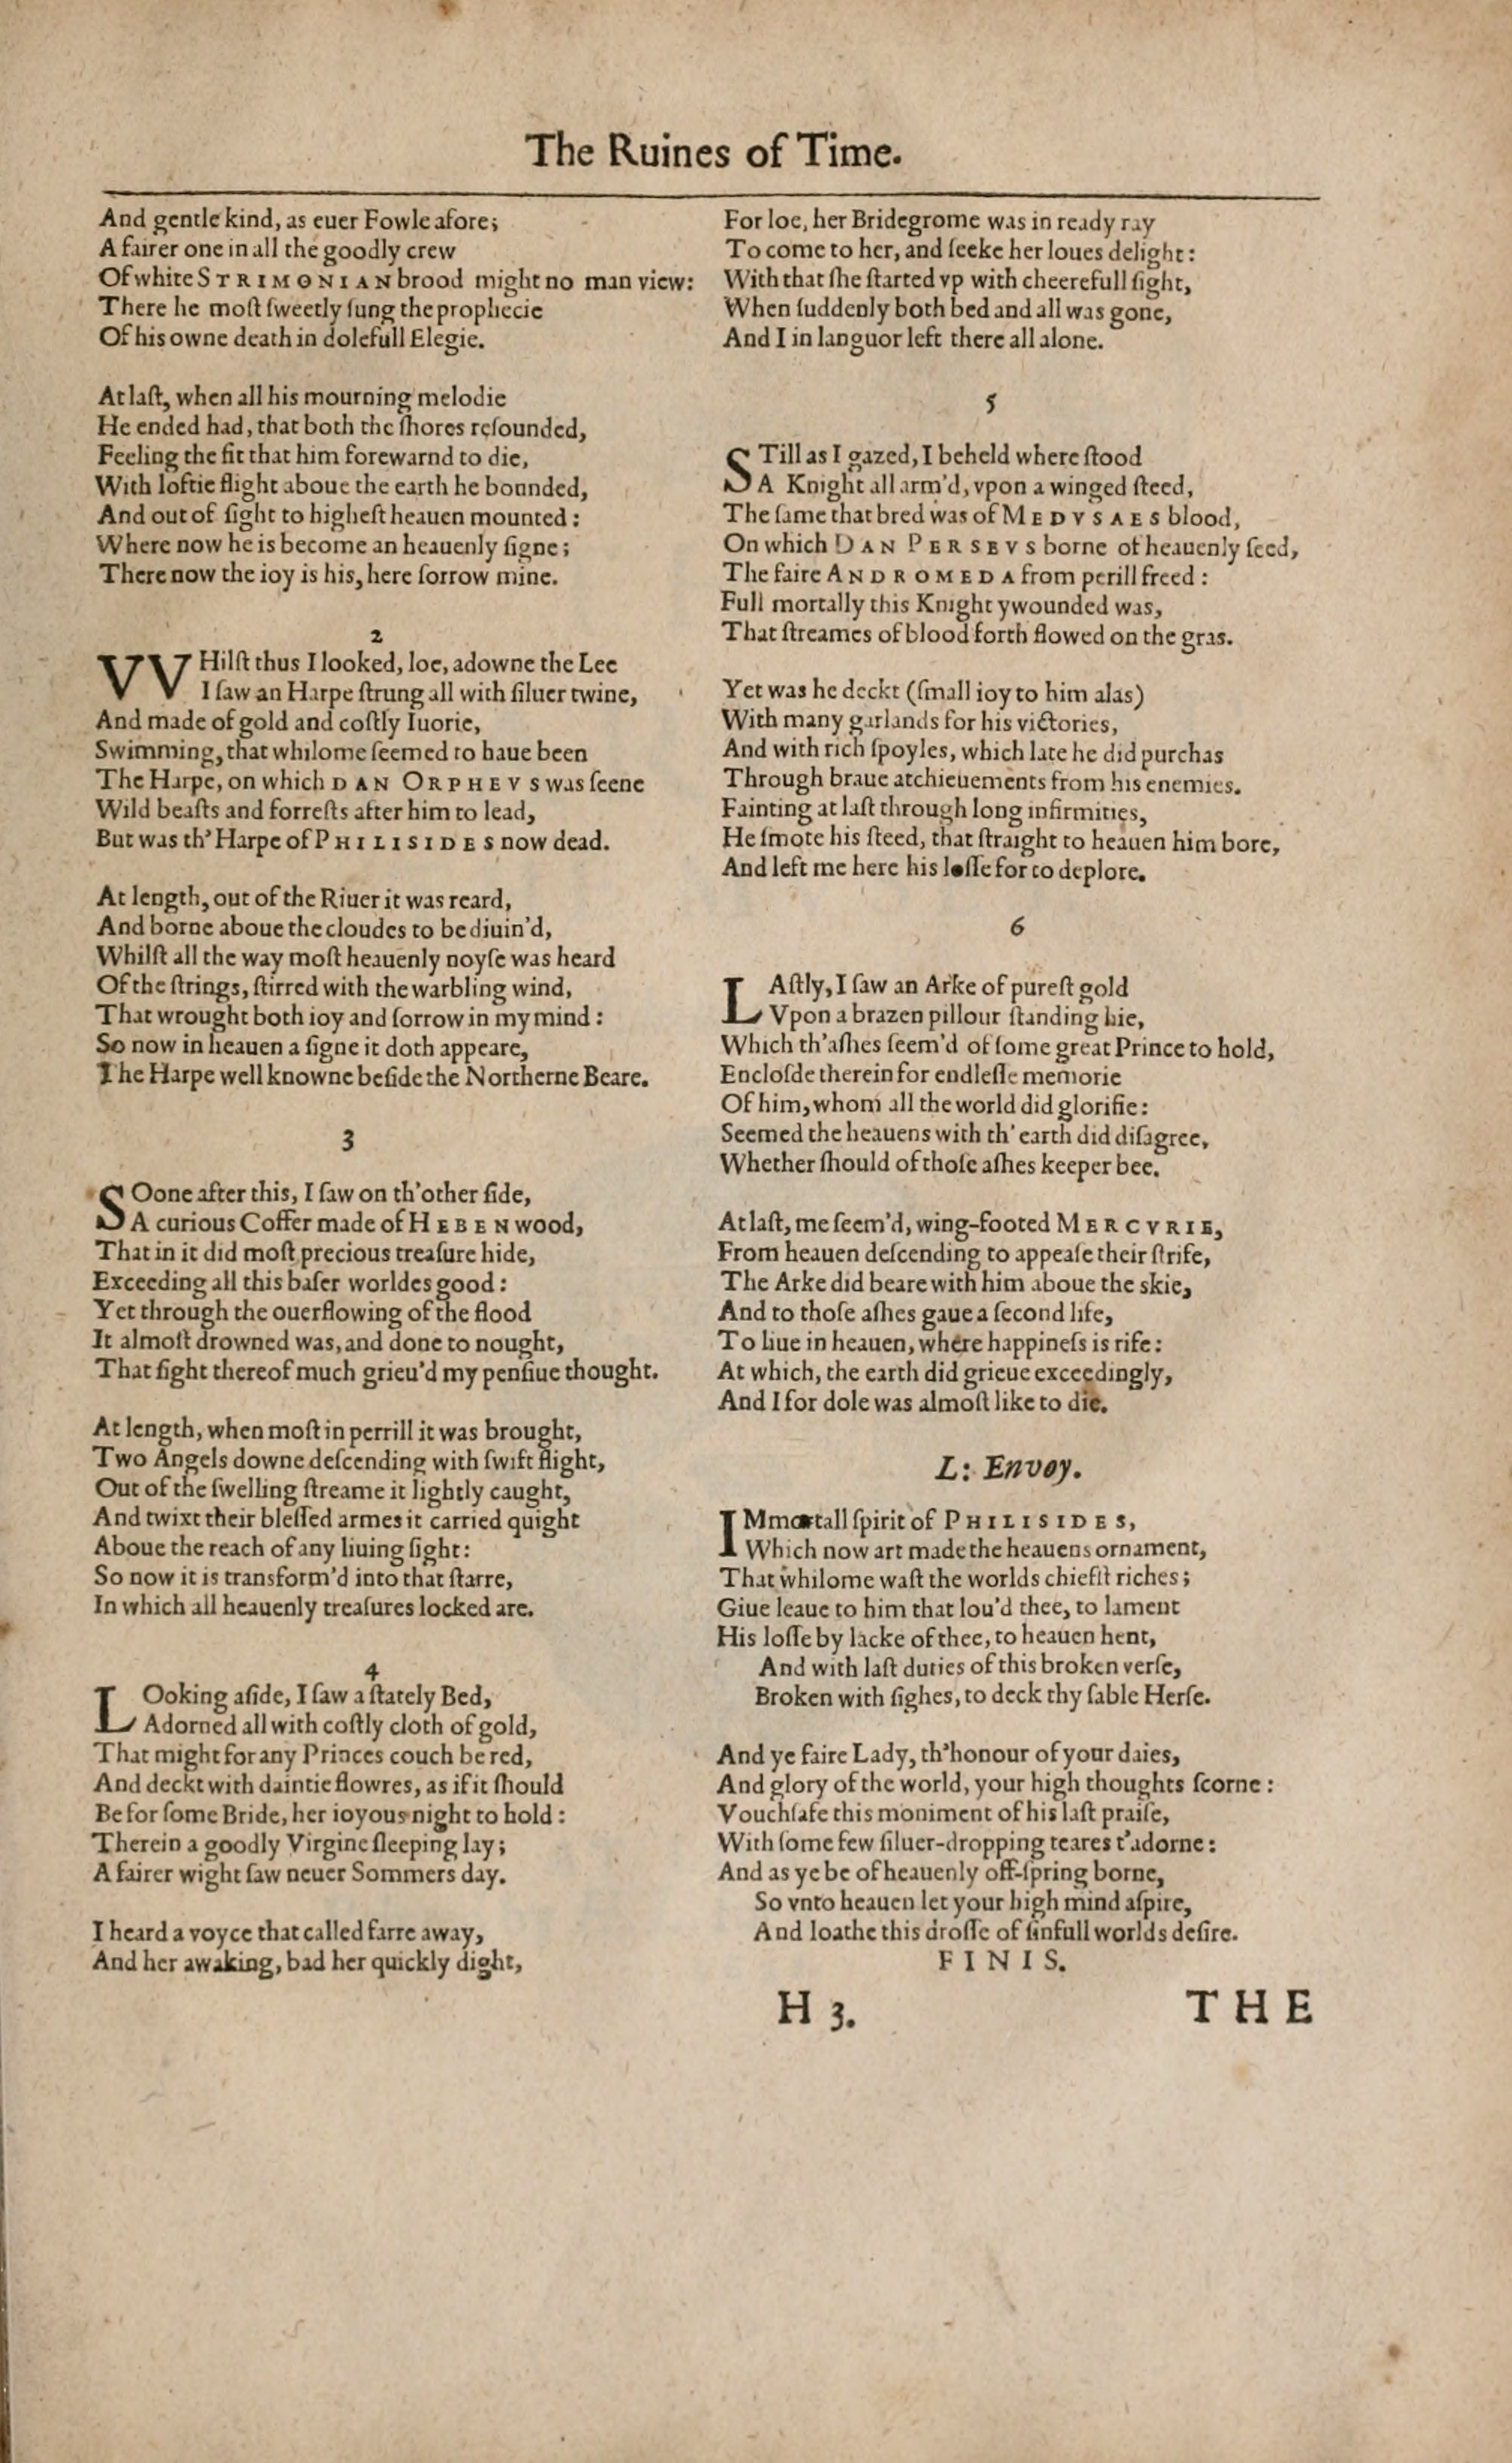 The Ruines of Time.
And gentle kind, as euer Fowle afore;
A fairer one in all the goodly crew
Of white STRIMONIAN brood might no man view:
There he moſt ſweetly ſung the prophecie
Of his owne death in dolefull Elegie.
At laſt, when all his mourning melodie
He ended had, that both the ſhores reſounded,
Feeling the fit that him forewarnd to die,
With loftie flight aboue the earth he bounded,
And out of ſight to higheſt heauen mounted:
Where now he is become an heauenly ſigne;
There now the ioy is his, here ſorrow mine.
2
VVHilſt thus I looked, loe, adowne the Lee
I ſaw an Harpe ſtrung all with ſiluer twine,
And made of gold and coſtly Iuorie,
Swimming, that whilome ſeemed to haue been
The Harpe, on which DAN ORPHEVS was ſeene
Wild beaſts and forreſts after him to lead,
But was th' Harpe of PHILISIDES now dead.
At length, out of the Riuer it was reard,
And borne aboue the cloudes to be diuin'd,
Whilſt all the way moſt heauenly noyſe was heard
Of the ſtrings, ſtirred with the warbling wind,
That wrought both ioy and ſorrow in my mind:
So now in heauen a ſigne it doth appeare,
The Harpe well knowne beſide the Northerne Beare.
3
SOone after this, I ſaw on th'other ſide,
A curious Coffer made of HEBEN wood,
That in it did moſt precious treaſure hide,
Exceeding all this baſer worldes good:
Yet through the ouerflowing of the flood
It almoſt drowned was, and done to nought,
That ſight thereof much grieu'd my penſiue thought.
At length, when moſt in perrill it was brought,
Two Angels downe deſcending with ſwift flight,
Out of the ſwelling ſtreame it lightly caught,
And twixt their bleſſed armes it carried quight
Aboue the reach of any liuing ſight:
So now it is transform'd into that ſtarre,
In which all heauenly treaſures locked are.
4
LOoking aſide, I ſaw a ſtately Bed,
Adorned all with coſtly cloth of gold,
That might for any Princes couch be red,
And deckt with daintie flowres, as if it ſhould
Be for ſome Bride, her ioyous night to hold:
Therein a goodly Virgine ſleeping lay;
A fairer wight ſaw neuer Sommers day.
I heard a voyce that called farre away,
And her awaking, bad her quickly dight,
For loe, her Bridegrome was in ready ray
To come to her, and ſeeke her loues delight:
With that ſhe ſtarted vp with cheerefull ſight,
When ſuddenly both bed and all was gone,
And I in languor left there all alone.
5
STill as I gazed, I beheld where ſtood
A Knight all arm'd, vpon a winged ſteed,
The ſame that bred was of MEDVSAES blood,
On which DAN PERSEVS borne of heauenly ſeed,
The faire ANDROMEDA from perill freed:
Full mortally this Knight ywounded was,
That ſtreames of blood forth flowed on the gras.
Yet was he deckt (ſmall ioy to him alas)
With many garlands for his victories,
And with rich ſpoyles, which late he did purchas
Through braue atchieuements from his enemies.
Fainting at laſt through long infirmities,
He ſmote his ſteed, that ſtraight to heauen him bore,
And left me here his loſſe for to deplore.
6
LAſtly, I ſaw an Arke of pureſt gold
Vpon a brazen pillour ſtanding hie,
Which th'aſhes ſeem'd of ſome great Prince to hold,
Encloſde therein for endleſſe memorie
Of him, whom all the world did glorifie:
Seemed the heauens with th' earth did diſagree,
Whether ſhould of thoſe aſhes keeper bee.
At laſt, me ſeem'd, wing-footed MERCVRIE,
From heauen deſcending to appeaſe their ſtrife,
The Arke did beare with him aboue the skie,
And to thoſe aſhes gaue a ſecond life,
To liue in heauen, where happineſs is rife:
At which, the earth did grieue exceedingly,
And I for dole was almoſt like to die.
L: Envoy.
IMmortall ſpirit of PHILISIDES,
Which now art made the heauens ornament,
That whilome waſt the worlds chiefſt riches;
Giue leaue to him that lou'd thee, to lament
His loſſe by lacke of thee, to heauen hent,
And with laſt duties of this broken verſe,
Broken with ſighes, to deck thy ſable Herſe.
And ye faire Lady, th'honour of your daies,
And glory of the world, your high thoughts ſcorne:
Vouchſafe this moniment of his laſt praiſe,
With ſome few ſiluer-dropping teares t'adorne:
And as ye be of heauenly off-ſpring borne,
So vnto heauen let your high mind aſpire,
And loathe this droſſe of ſinfull worlds deſire.
FINIS.
H 3.
THE